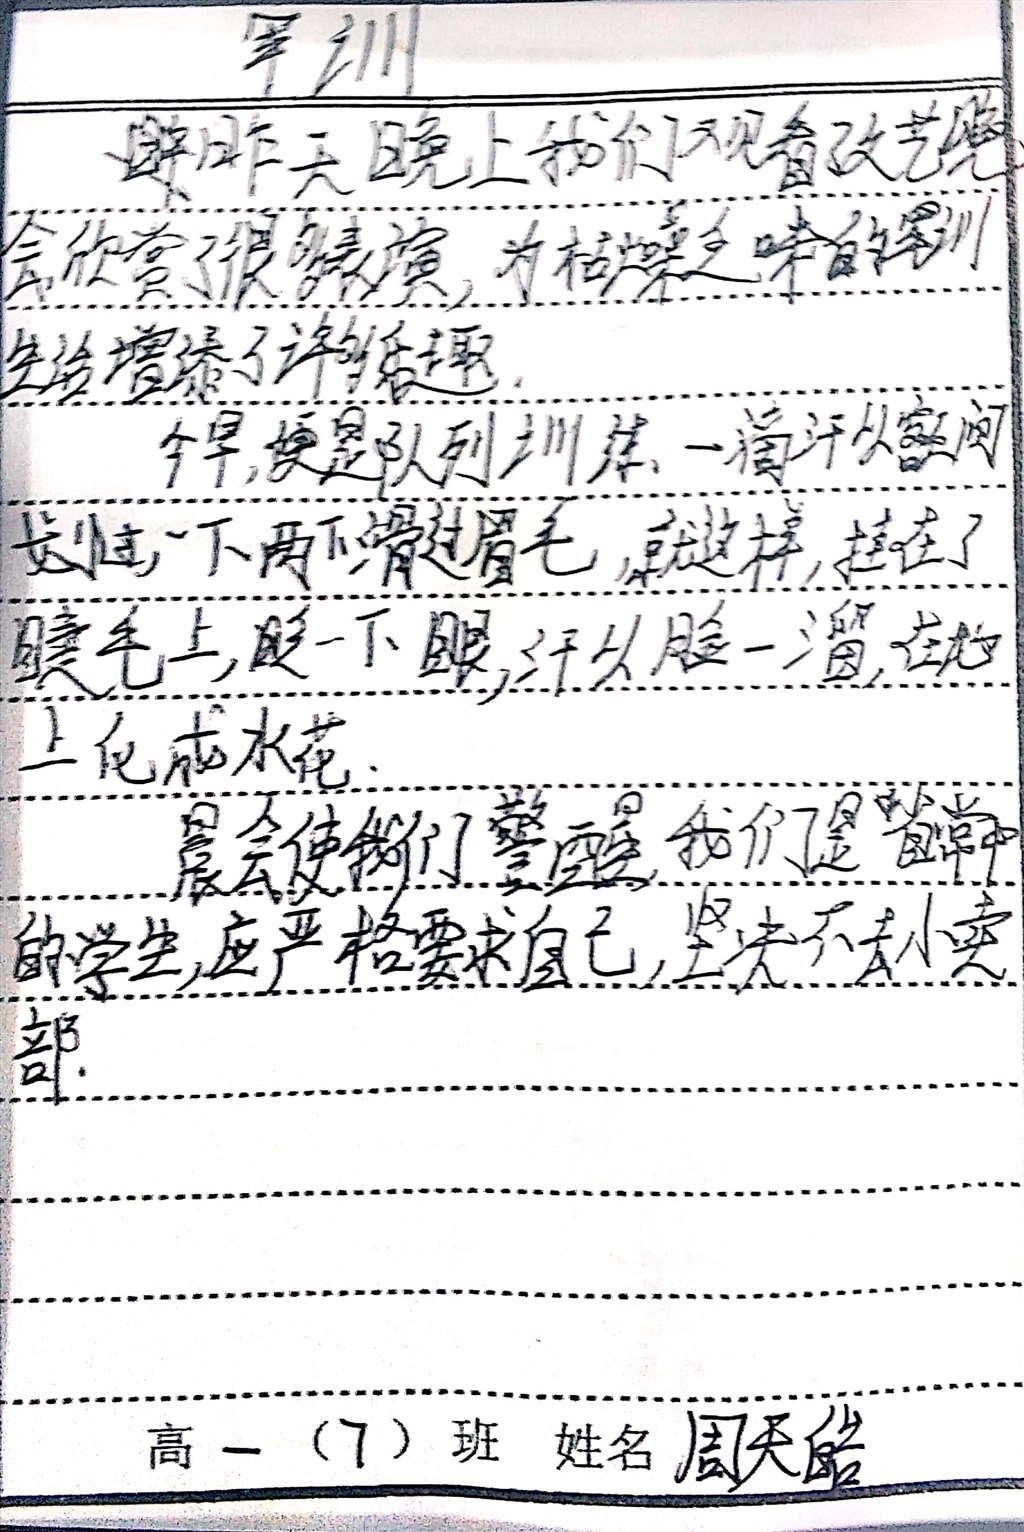 军训
昨天晚上我们观看了文艺晚
会欣赏了很多表演,为枯燥乏味的军训
生活增添了许多乐趣.
今早,便是队列训练、一滴汗从额间
划过,一下两下滑过眉毛,就这样,挂在了
睫毛上,眨一下眼,汗从脸一溜,在地
上化成水花.
晨会使我们警醒,我们是 中
的学生,应严格要求自己,坚决不去小卖
部.
高一(7)班 姓名 周天皓